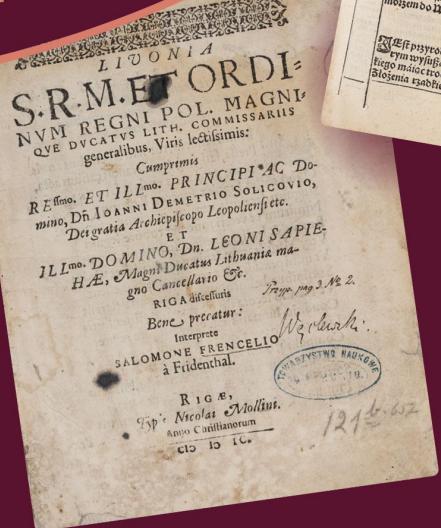 LIVONIA
S.R.M.ET ORDI-
NVM REGNI POL. MAGNI-
QVE DVCATVS LITH. COMMISSARIIS
generalibus, Viris lectissimis:
Cumprimis
REssmo. ET ILLmo. PRINCIPI AC Do-
mino, Dn. IOANNI DEMETRIO SOLICOVIO,
Dei gratia Archiepiscopo Leopoliensi etc.
ET
ILLmo. DOMINO, Dn. LEONI SAPIE-
HÆ, Magni Ducatus Lithuaniæ ma-
gno Cancellario &c.
RIGA discessuris
Bene precatur:
Interprete
SALOMONE FRENCELIO
à Fridenthal.
Przyp. pag. 3. № 2.
Węclewski.
TOWARZYSTWO NAUKOWE
RIGÆ,
Typis Nicolai Mollini.
Anno Christianorum
CIↃ IↃ IC.
121
morzem do
JEst przyro
rym wysusz
kiego máiąc
złożenia rzadki